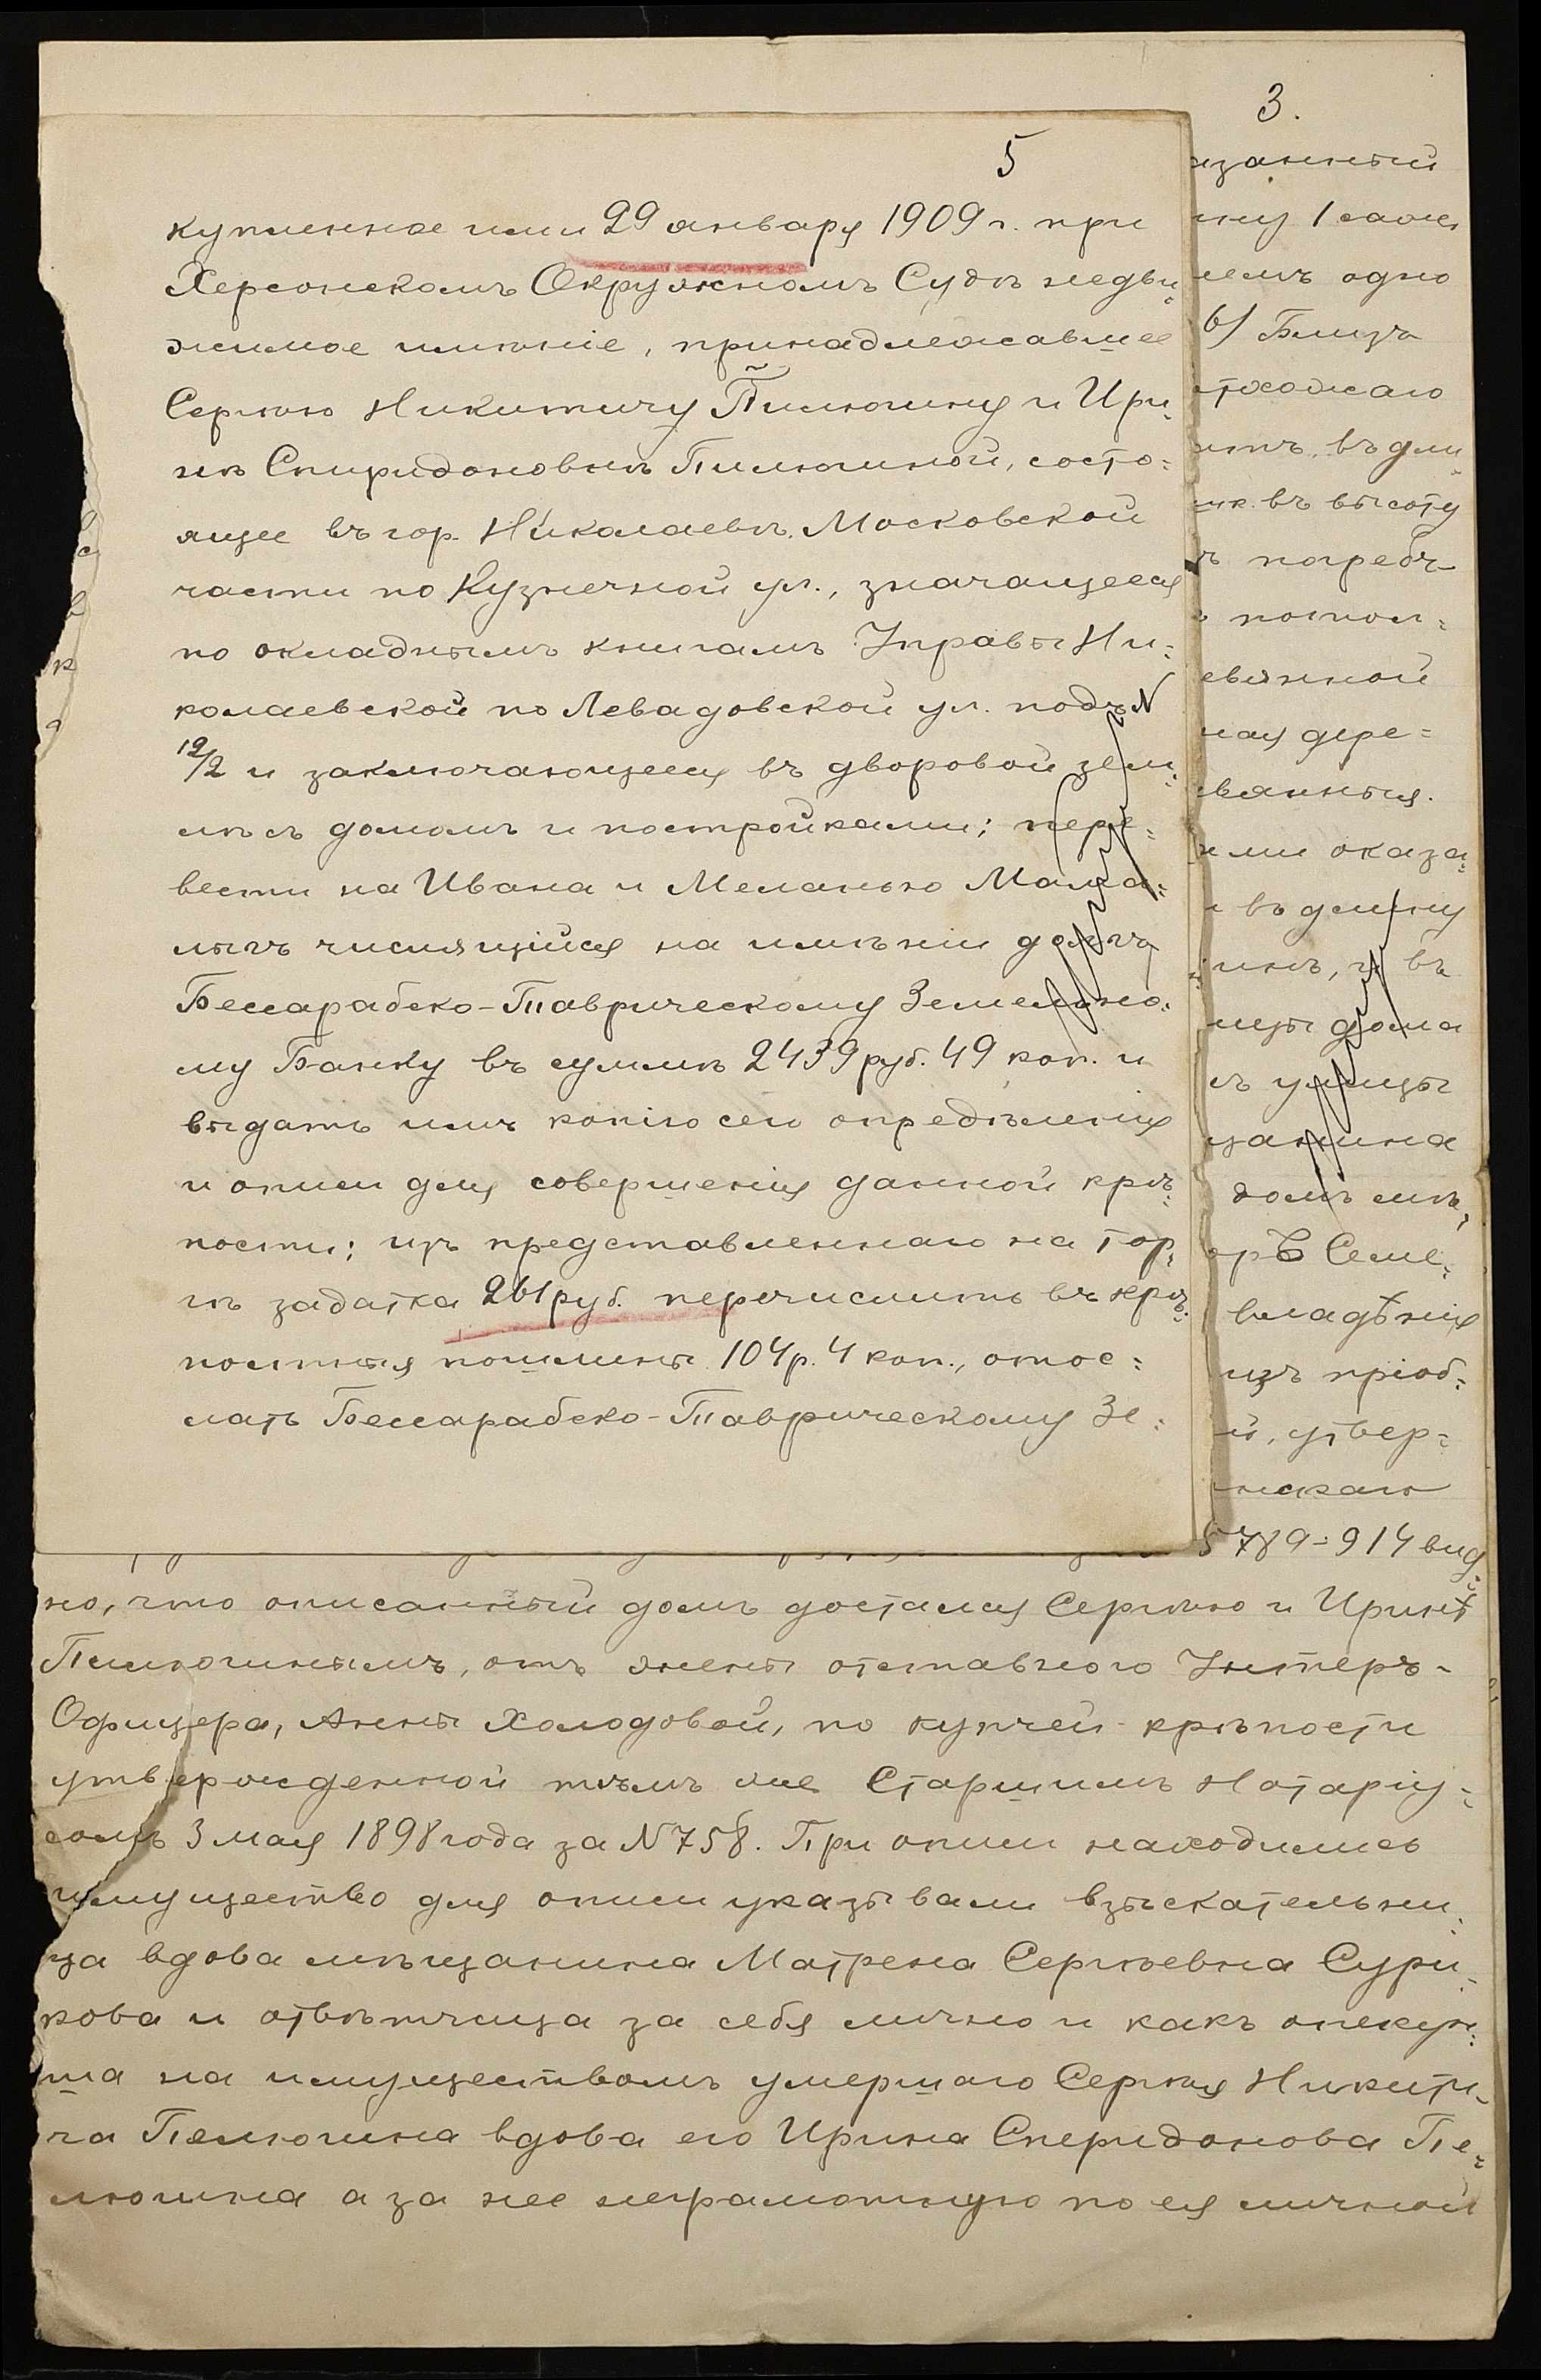 5
купленное ими 29 января 1909 г. при
Херсонскомъ Окружномъ Судѣ недви-
жимое имѣніе, принадлежавшее
Сергѣю Никитичу Пилюгину и Ири-
нѣ Спиридоновнѣ Пилюгиной, состо-
ящее въ гор. Николаевѣ, Московской
части по Кузнечной ул., значащееся
по окладнымъ книгамъ Управы Ни-
колаевской по Левадовской ул. подъ N
12/2 и заключающееся въ дворовой зем-
лѣ съ домомъ и постройками; пере-
вести на Ивана и Меланью
числящійся на имѣніи долгъ
Бессарабско-Таврическому Земельно-
му Банку въ суммѣ 2439 руб. 49 коп. и
выдать имъ копію сего опредѣленія
и описи для совершенія данной крѣ-
пости; изъ представленнаго на тор-
гѣ задатка 261 руб. перечислить въ крѣ-
постныя пошлины 104 р. 4 коп., отос-
лать Бессарабско-Таврическому Зе-
3.
изанный
ину 1 саж
чемъ одно
в/ Близъ
отхожаго
въ дли
въ высоту
погребъ
потол-
евянной
ная дере-
вянныя.
ими оказа-
въ длину
и въ
ицы дома
съ улицы
щанина
домъ мѣ-
оръ Семе-
владѣнія
изъ пріоб-
й, утвер-
нскаго
5789-914 вид-
но, что описанный домъ достался Сергѣю и Иринѣ
Пилюгинымъ, отъ жены отставного Унтеръ-
Офицера, Анны Холодовой, по купчей крѣпости
утвержденной тѣмъ же Старшимъ Нотаріу-
сомъ 3 мая 1898 года за N 758. При описи находились
имущество для описи указывали взыскательни-
ца вдова мѣщанина Матрена Сергѣевна Сури-
кова и отвѣтчица за себя лично и какъ опекун-
ша на имуществомъ умершаго Сергѣя Никити-
ча Пелюгина вдова его Ирина Сперидонова Пе-
люгина а за нее неграмотную по ея личной